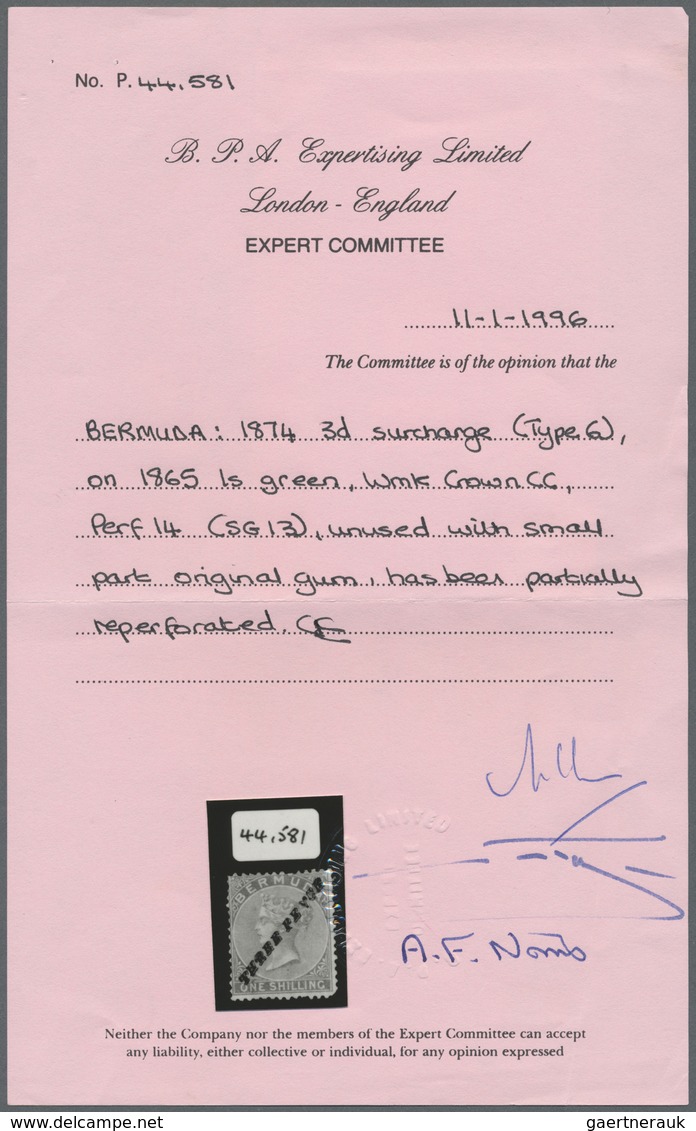 No. P. 44,581
B. P. A. Expertising Limited
London - England
EXPERT COMMITTEE
11-1-1996
The Committee is of the opinion that the
BERMUDA: 1874 3d surcharge (Type 6),
on 1865 1s green, Wmk Crown CC,
Perf 14 (SG 13), unused with small
part original gum, has been partially
reperforated.
44,581
LIMITED
BERMUDA
THREE PENCE
ONE SHILLING
A.F. Norris
Neither the Company nor the members of the Expert Committee can accept
any liability, either collective or individual, for any opinion expressed
gaertnerauk